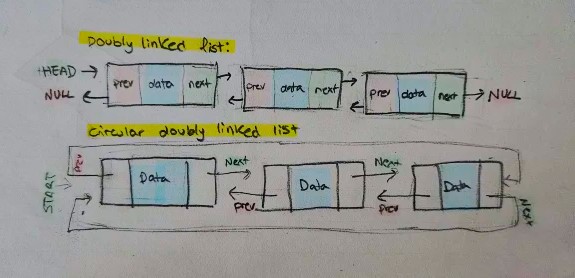 Doubly linked list:
HEAD
prev data next
prev data next
prev data next
NULL
NULL
Circular doubly linked list
prev
Next
Next
START
Data
Data
Data
prev
prev
Next